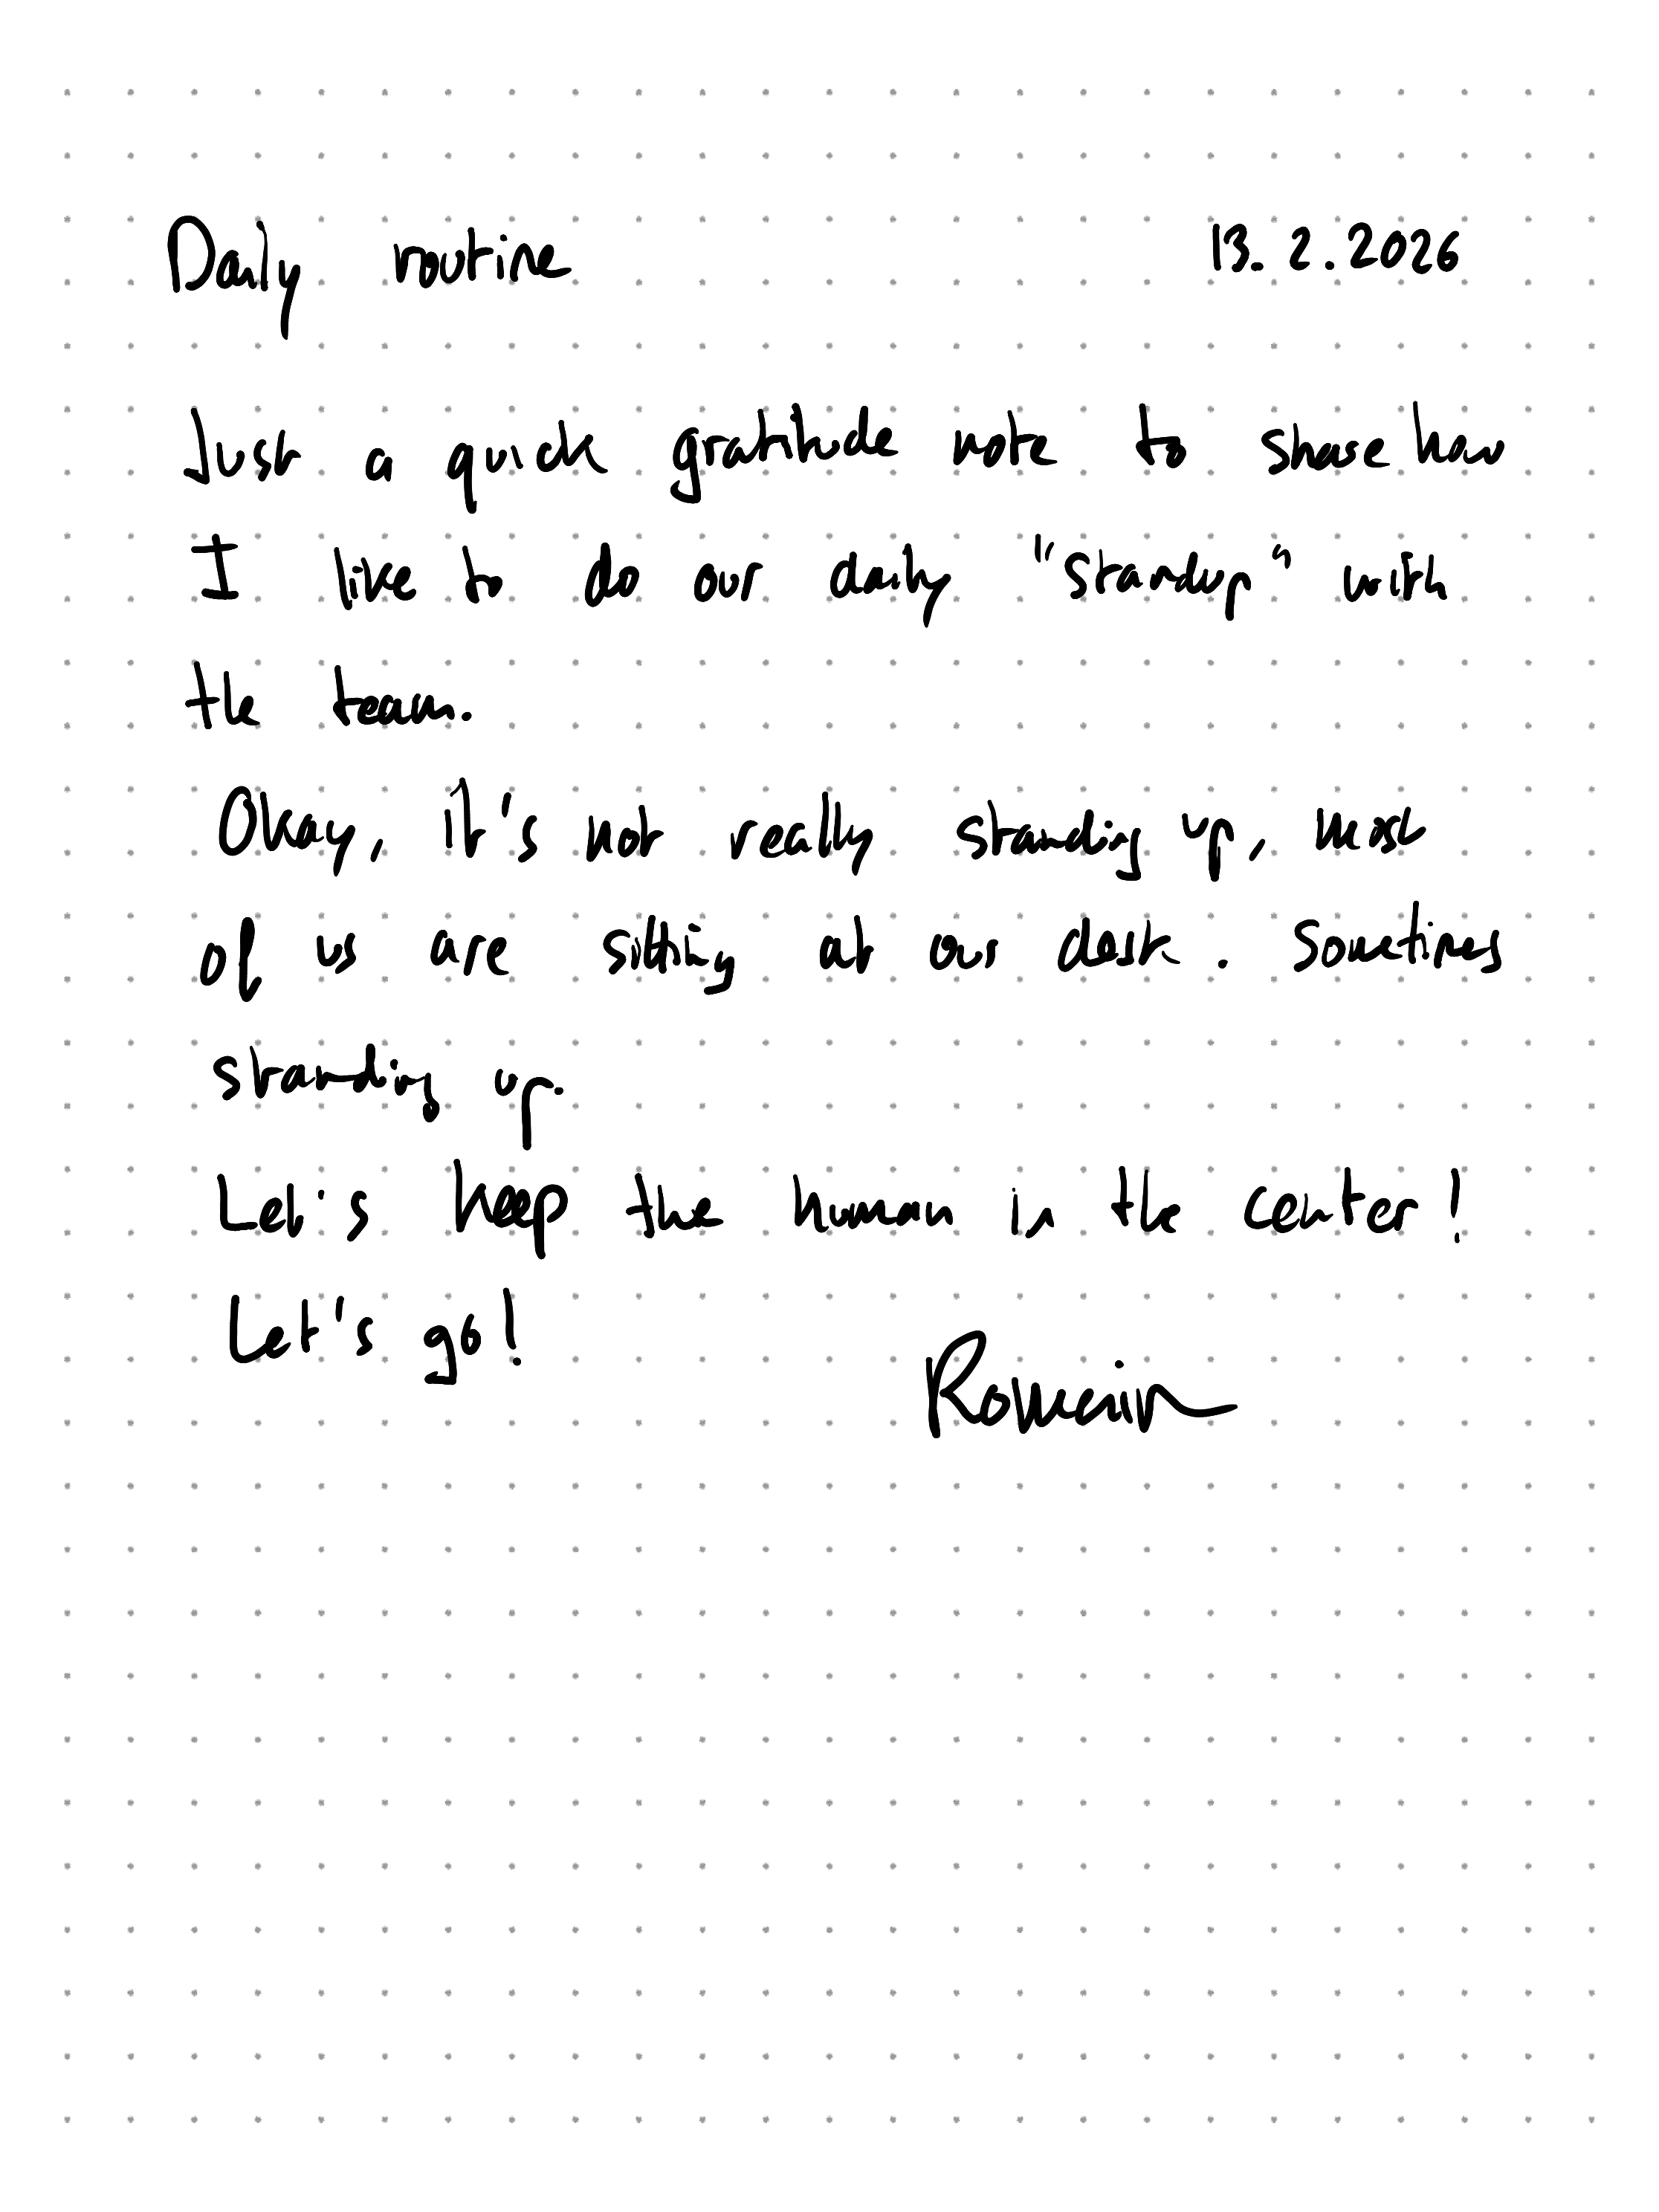 Daily routine 13.2.2026
Just a quick gratitude note to share how
I like to do our daily "standup" with
the team.
Okay, it's not really standing up, most
of us are sitting at our desk. Sometimes
standing up.
Let's keep the human in the center!
Let's go!
Romain